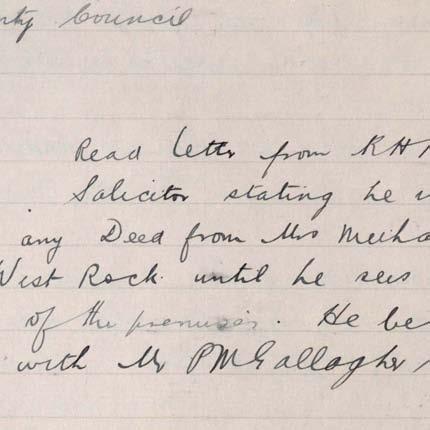 nty Council
Read letter from K H
Solicitor stating he
any Deed from Mrs
West Rock until he sees
of the premises. He be
with Mr P M Gallagher